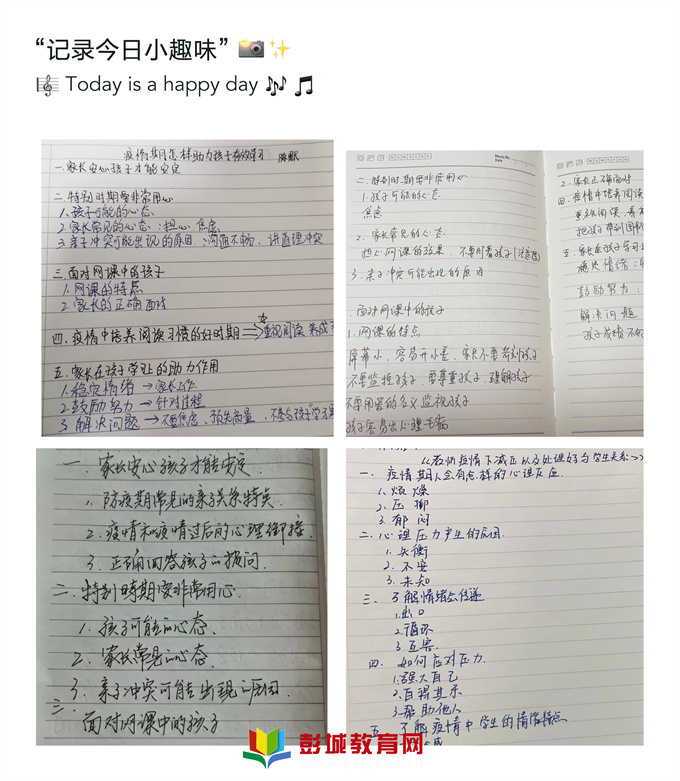 “记录今日小趣味”
Today is a happy day
疫情期怎样助力孩子有效学习
一.家长安心孩子才能安定
二.特别时期要非常用心
1.孩子可能的心态
2.家长常见的心态：担心 焦虑
3.亲子冲突可能出现的原因：沟通不畅，讲道理冲突
三.面对网课中的孩子
1.网课的特点
2.家长的正确面对
四.疫情中培养阅读习惯的好时期 重视阅读 养成
五.家长在孩子学业的助力作用
1.稳定情绪→家长
2.鼓励努力→针对过程
3.解决问题→不要焦虑，预先商量，
二.特别时期要非常用心
1.孩子可能的心态
焦虑
2.家长常见的心态
担心网课的效果，不要盯着孩子
3.亲子冲突可能出现的原因
.面对网课中的孩子
1.网课的特点
屏幕小，容易开小差，家长不要苛刻孩子
不要监控孩子，要尊重孩子，理解孩子
不要用爱的名义监视孩子
孩子容易出心理毛病
2.家长正确面对
四.疫情中培养阅读
五.家长在孩子学习
稳定情绪：
鼓励努力：
解决问题
孩子成绩不好
一.家长安心孩子才能安定.
1.防疫期常见的亲子关系特点.
2.疫情和疫情过后的心理衔接.
3.正确回答孩子的提问.
二.特别时期要非常用心.
1.孩子可能的心态.
2.家长常见的心态.
3.亲子冲突可能出现的原因.
三.
面对网课中的孩子
《教师疫情下减压以及处理好与学生关系》
一.疫情期人会有怎样的心理反应.
1.烦燥
2.压抑
3.郁闷
二.心理压力产生的原因.
1.失衡
2.不安
3.未知
三.了解情绪会传递
1.出口
2.循环
3.互害.
四.如何应对压力.
1.强大自己
2.自得其乐
3.帮助他人
五.了解疫情中学生的情绪特点
彭城教育网